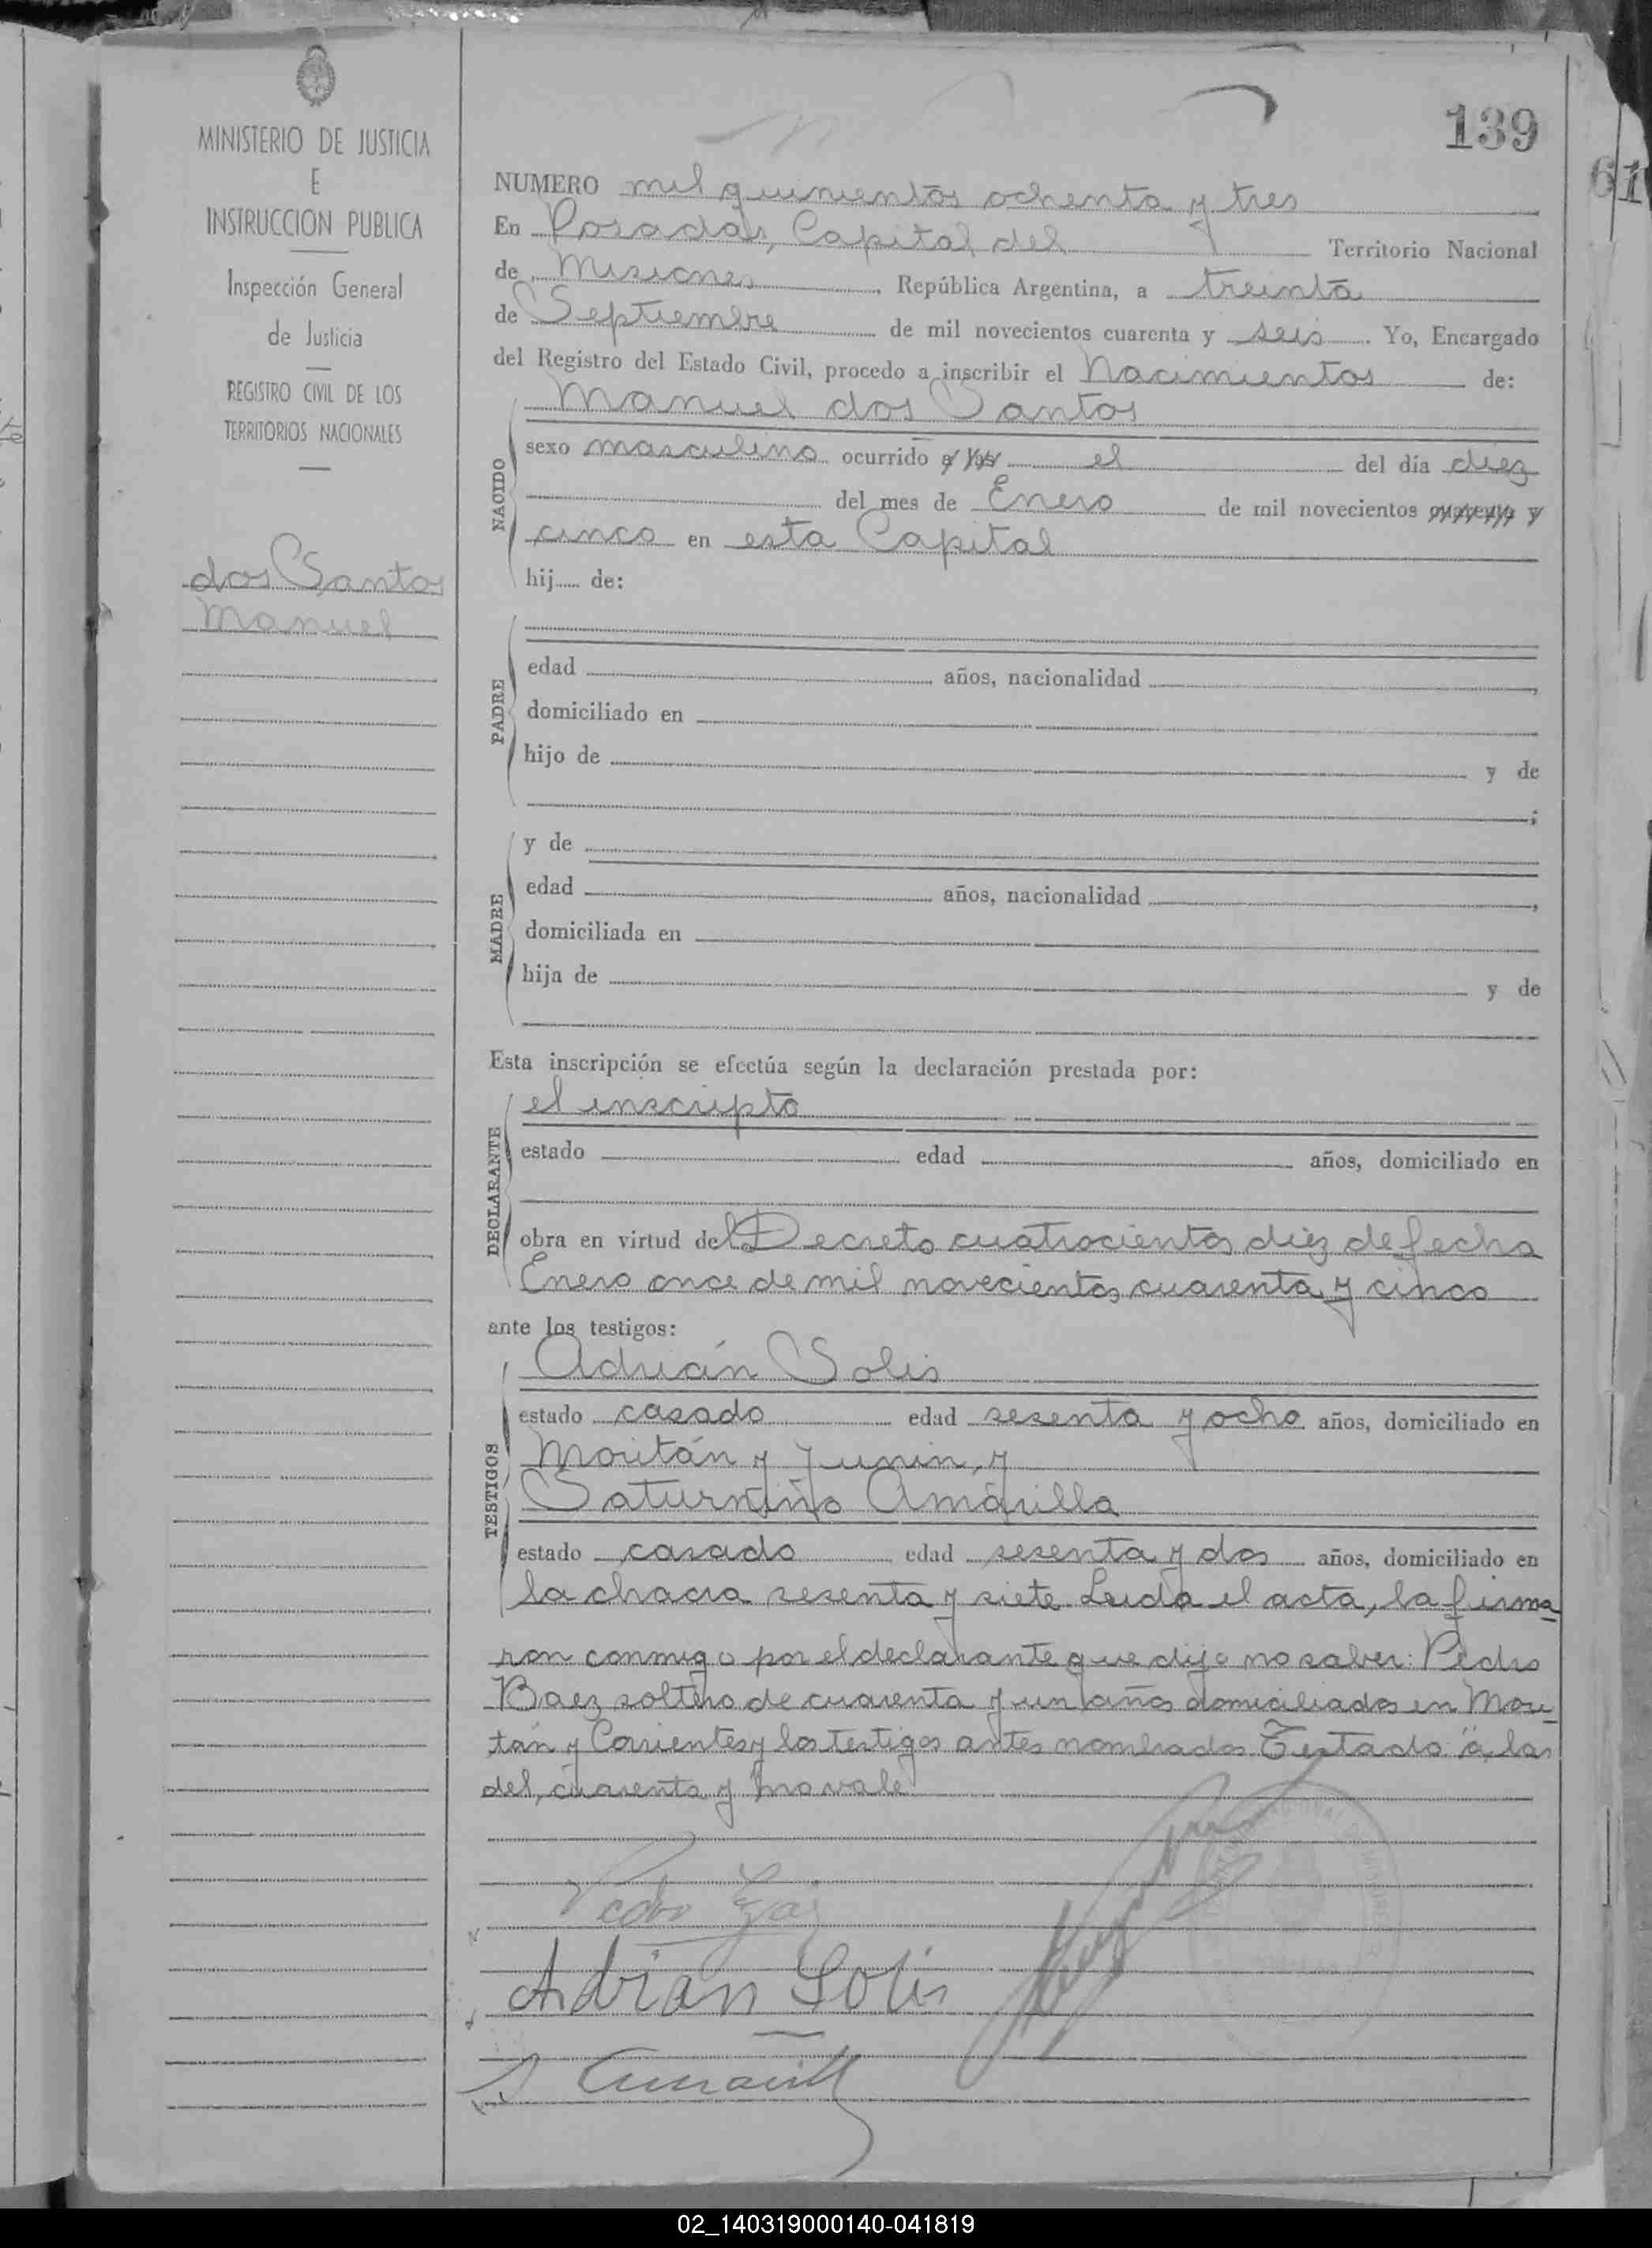 139
61
MINISTERIO DE JUSTICIA
E
INSTRUCCION PUBLICA
Inspección General
de Justicia
REGISTRO CIVIL DE LOS
TERRITORIOS NACIONALES
dos Santos
Manuel
NUMERO mil quinientos ochenta y tres
En Posadas, Capital del Territorio Nacional
de Misiones, República Argentina, a treinta
de Septiembre de mil novecientos cuarenta y seis. Yo, Encargado
del Registro del Estado Civil, procedo a inscribir el Nacimientos de:
NACIDO
Manuel dos Santos
sexo masculino ocurrido a las el del día diez
del mes de Enero de mil novecientos cuarenta y
cinco en esta Capital
hij..... de:
PADRE
edad años, nacionalidad ,
domiciliado en
hijo de y de
;
MADRE
y de
edad años, nacionalidad ,
domiciliada en
hija de y de
Esta inscripción se efectúa según la declaración prestada por:
DECLARANTE
el inscripto
estado edad años, domiciliado en
obra en virtud del Decreto cuatrocientos diez de fecha
Enero once de mil novecientos cuarenta y cinco
ante los testigos:
TESTIGOS
Adrián Solis
estado casado edad sesenta y ocho años, domiciliado en
Moritán y Junin, y
Saturnino Amarilla
estado casado edad sesenta y dos años, domiciliado en
la chacra sesenta y siete. Leida el acta, la firma-
ron conmigo por el declarante que dijo no saber: Pedro
Baez soltero de cuarenta y un años domiciliados en Mori-
tán y Corrientes y los testigos antes nombrados Testado "a, las
del, cuarenta y" no vale
Pedro
Adrian Solis
S Amarilla
02_140319000140-041819